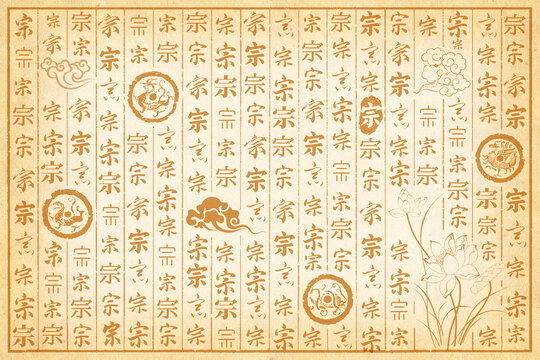 宗宗宗宗宗宗宗宗宗宗
宗宗宗宗宗宗宗宗宗宗
宗宗宗宗宗宗宗宗
宗宗宗宗宗宗宗
宗宗宗宗宗宗宗宗宗宗宗
宗宗宗宗宗宗宗宗宗宗宗宗
宗宗宗宗宗宗宗宗宗宗宗
宗宗宗宗宗宗宗宗宗宗宗
宗宗宗宗宗宗宗宗宗宗宗宗
宗宗宗宗宗宗宗宗宗宗宗
宗宗宗宗宗宗宗宗宗宗
宗宗宗宗宗宗宗宗宗宗宗
宗宗宗宗宗宗宗宗宗宗
宗宗宗宗宗宗宗宗宗宗
宗宗宗宗宗宗宗宗宗宗宗宗
宗宗宗宗宗宗宗宗宗
宗宗宗宗宗宗宗宗宗
宗宗宗宗宗宗宗宗宗宗宗宗